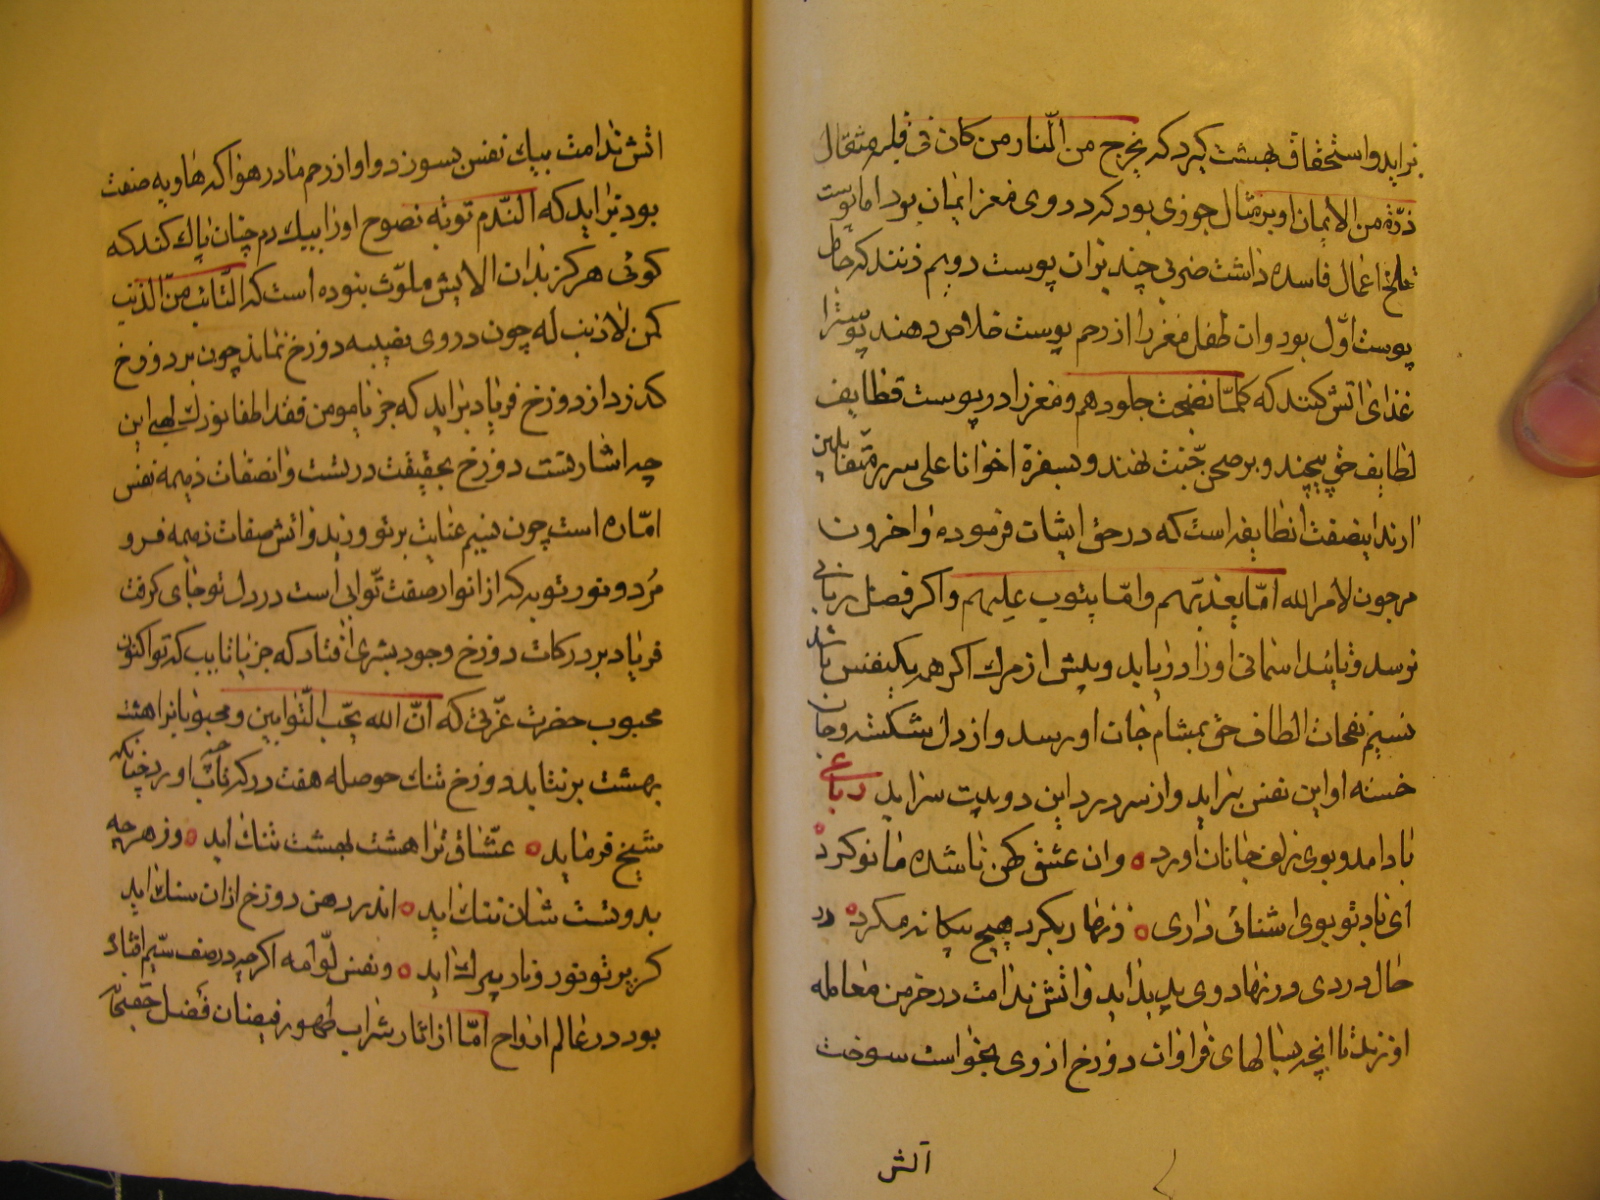 بزاید واستحقاق بهشت کیرد که یخرج من النار من کان فی قلبه مثقال
ذرّة من الایمان او بر مثال جوزی بود که در وی مغز ایمان بود اما پوست
تلخ اعمال فاسده داشت ضربی چند بران پوست دویم زنند که حامل
پوست اوّل بود وان طفل مغز را از رحم پوست خلاص دهند پوسترا
غذای اتش کنند که کلّما نضجت جلودهم و مغز را در پوست قطایف
لطایف حق پیچند و بر صحن جنّت نهند و بسفرة اخوانا علی سرر متقابلین
ارند اینصفت انطایفه است که در حق ایشان فرموده واخرون
مرجون لامر الله امّا یعذبّهم وامّا یتوب علیهم واکر فضل ربّانی
در رسد وتائید اسمانی او را دریابد و پیش از مرک اکر همه یکنفس باشد
نسیم نفحات الطاف حق بمشام جان او رسد و از دل شکسته وجان
خسته او این نفس بزاید و از سر درد این دو بیت سراید رباعی
باد امد و بوی زلف جانان اورد وان عشق کهن ناشده ما نو کرد
ای باد تو بوی اشنائی داری زنهار بکرد هیچ بیکانه مکرد در
حال دردی در نهاد وی پدید اید و اتش ندامت در خرمن معامله
او زند تا انچه بسالهای فراوان دوزخ از وی بخواست سوخت
آتش
اتش ندامت بیک نفس بسوزد و او از رحم مادر هوا که هاویه صفت
بود بزاید که الندم توبه نصوح او را بیک دم چنان پاک کند که
کوئی هرکز بذان الایش ملوّث نبوده است که التائب من الذنب
کمن لا ذنب له چون در وی نصیبه دوزخ نماند چون بر دوزخ
کذرد از دوزخ فریاد براید که جز یا مومن فقد اطفا نورک لهبی این
چه اشارتست دوزخ بحقیقت درتست وانصفات ذمیمه نفس
امّاره است چون نسیم عنایت بر تو وزید و اتش صفات ذمیمه فرو
مُرد و نور توبه که از انوار صفت توّابی است در دل تو جای کرفت
فریاد بر درکات دوزخ وجود بشری افتاد که جز یا تایب که تو اکنون
محبوب حضرت عزّتی که انّ الله یحّب التّوابین و محبوبانرا هشت
بهشت برنتابد دوزخ تنک حوصله هفت درکه تاب او چه اورد چنانکه
شیخ فرماید عشّاق ترا هشت بهشت تنک اید وز هرچه
بدونتست شان ننک اید اندر دهن دوزخ ازان سنک اید
کز پرتو نور و نار بیرنک اید ونفس لوّامه اکرچه در صف سیّم افتاد
بود در عالم ارواح امّا از اثار شراب طهور فیضان فضل حق بجان